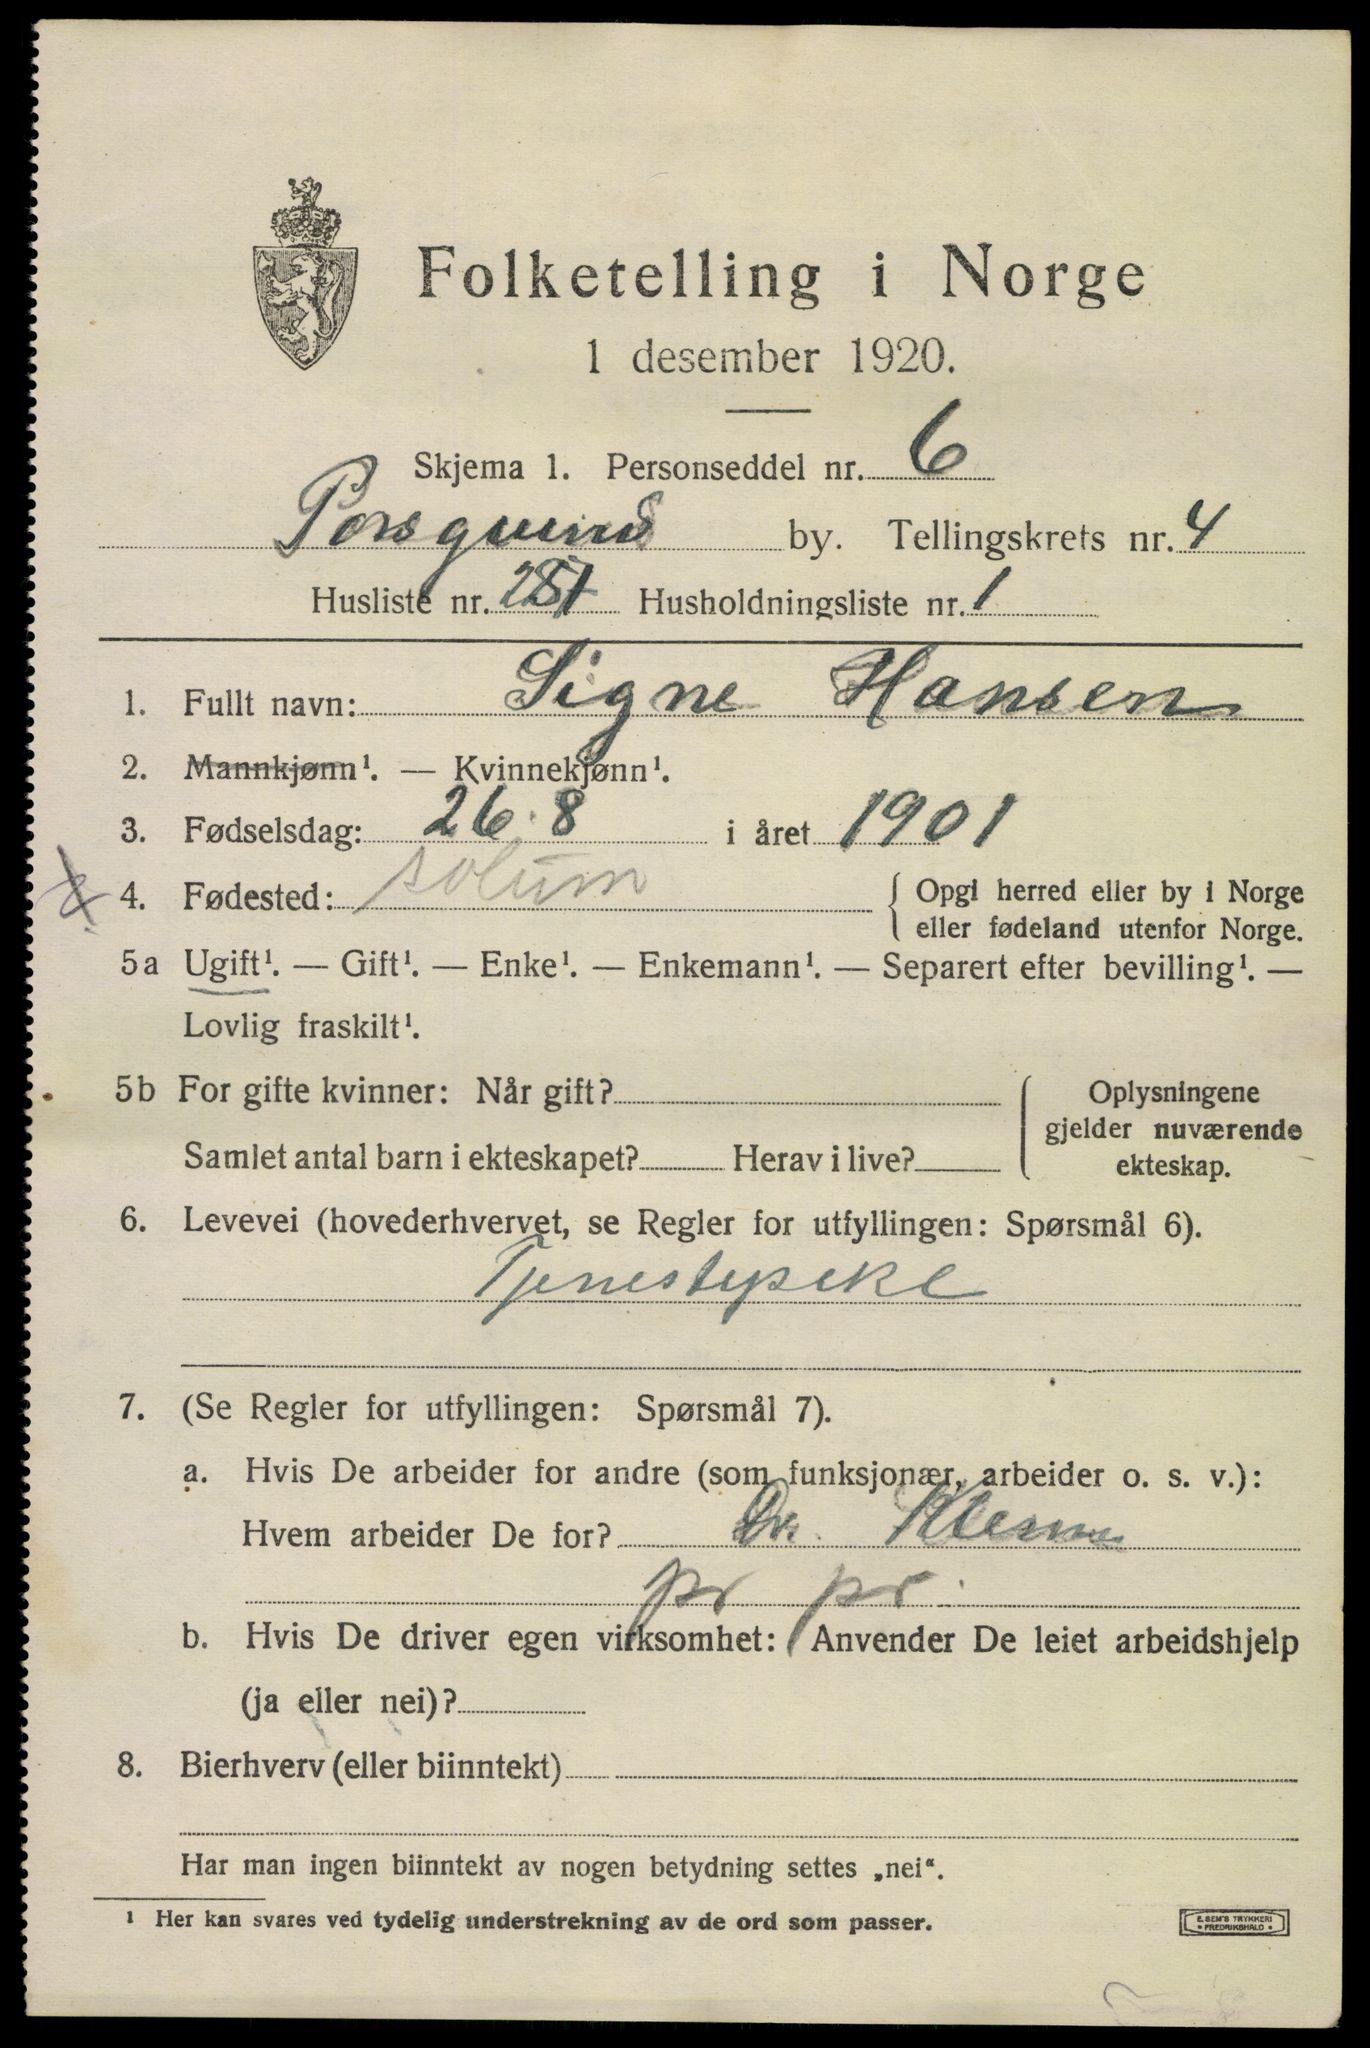 Folketelling i Norge
1 desember 1920.
Skjema 1. Personseddel nr. 6
Porsgrund by. Tellingskrets nr. 4
Husliste nr. Husholdningsliste nr. 1
1. Fullt navn: Signe Hansen
2. Mannkjønn¹. — Kvinnekjønn¹.
3. Fødselsdag: 26.8 i året 1901
4. Fødested: solum { Opgi herred eller by i Norge
eller fødeland utenfor Norge.
5a Ugift¹. — Gift¹. — Enke¹. — Enkemann¹. — Separert efter bevilling¹. —
Lovlig fraskilt¹.
5b For gifte kvinner: Når gift? Oplysningene
gjelder nuværende
Samlet antal barn i ekteskapet? Herav i live? ekteskap.
6. Levevei (hovederhvervet, se Regler for utfyllingen: Spørsmål 6).
Tjenestepike
7. (Se Regler for utfyllingen: Spørsmål 7).
a. Hvis De arbeider for andre (som funksjonær, arbeider o. s. v.):
Hvem arbeider De for? Dr.
pr pr.
b. Hvis De driver egen virksomhet: Anvender De leiet arbeidshjelp
(ja eller nei)?
8. Bierhverv (eller biinntekt) —
Har man ingen biinntekt av nogen betydning settes „nei“.
¹ Her kan svares ved tydelig understrekning av de ord som passer.
E. SEM'S TRYKKERI
• FREDRIKSHALD •